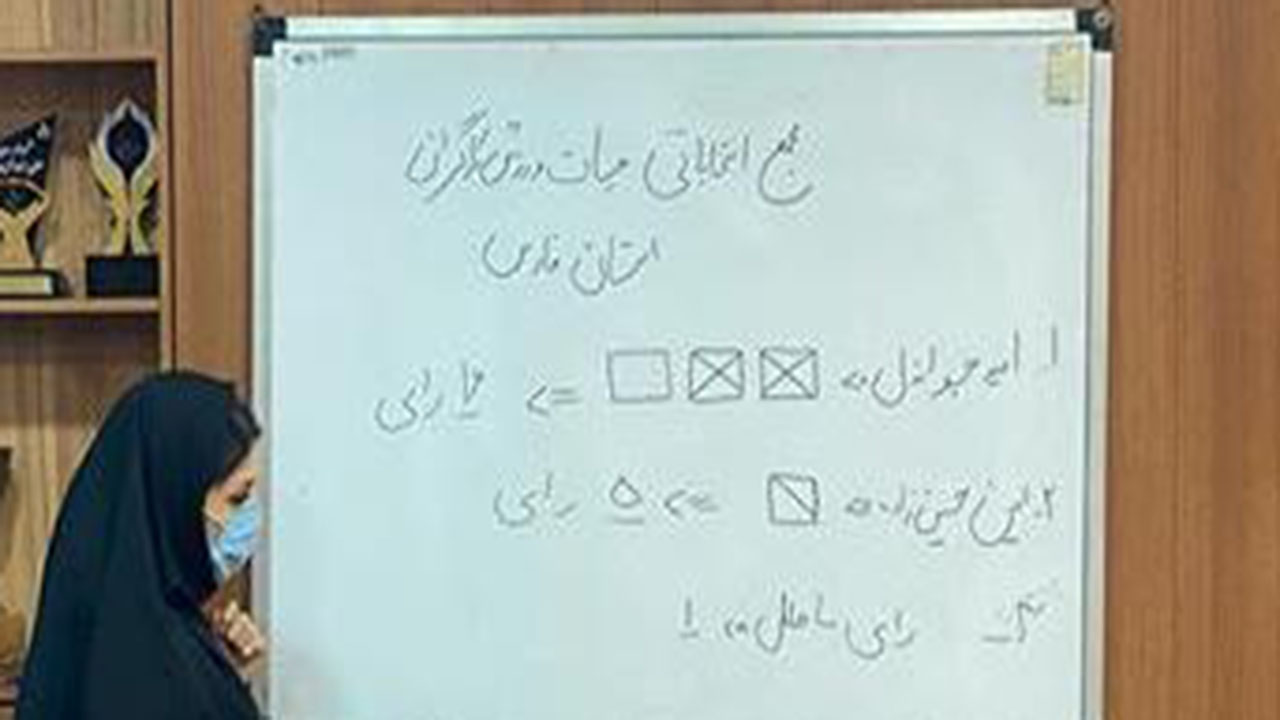 مجمع انتخاباتی هیات ورزش کارگری
استان فارس
۱. امید جبوانزل => ۱۶ رای
۲. امین حسین زاده => ۵ رای
رای باطل ۱